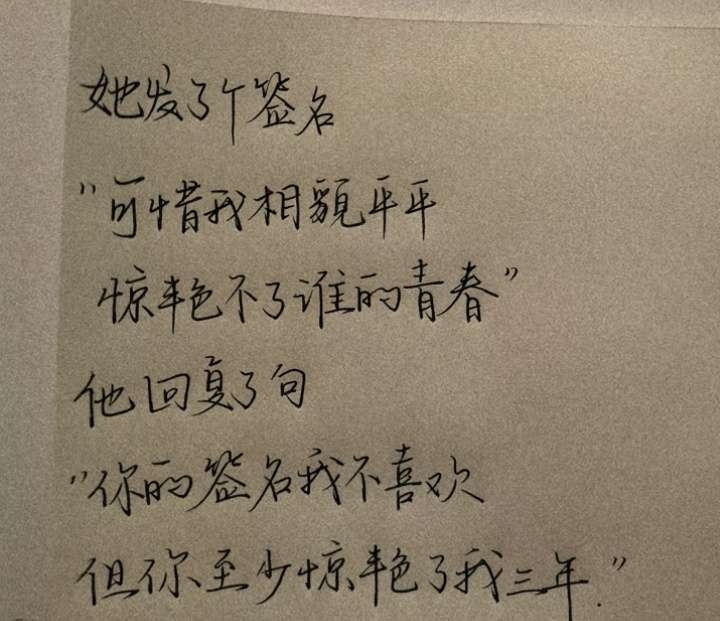 她发了个签名
"可惜我相貌平平
惊艳不了谁的青春"
他回复了句
"你的签名我不喜欢
但你至少惊艳了我三年."